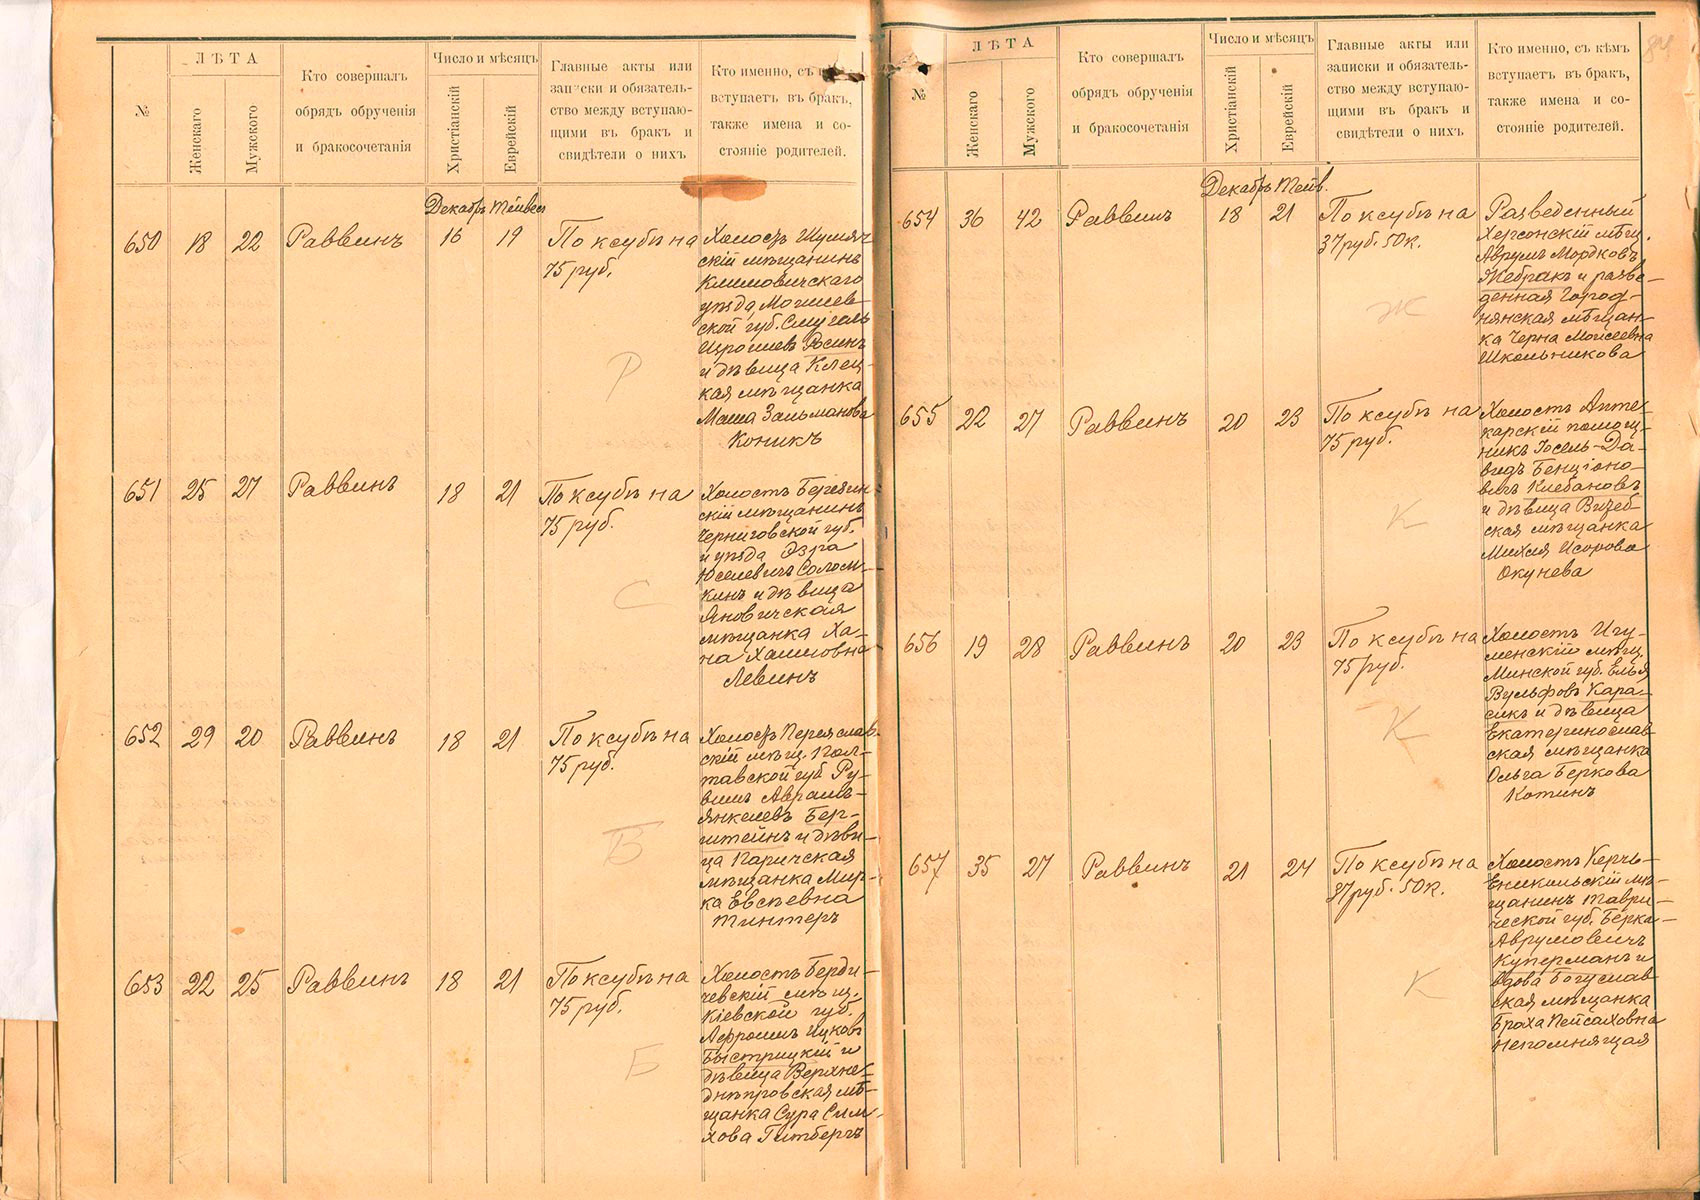 №
ЛѢТА
Женскаго
Мужского
Кто совершалъ
обрядъ обрученія
и бракосочетанія
Число и мѣсяцъ
Христіанскій
Еврейскій
Главные акты или
записки и обязатель-
ство между вступаю-
щими въ бракъ и
свидѣтели о нихъ
Кто именно, съ
вступаетъ въ бракъ,
также имена и со-
стояніе родителей.
Декабрь Тейвесъ
650 18 22 Раввинъ 16 19
По ксубѣ на
75 руб.
Холостъ Шумяч
скій мѣщанинъ
Климовичскаго
уѣзда, Могилев
ской губ.
Росинъ
и дѣвица Клец-
кая мѣщанка
Маша Зальманова
Коникъ
Р
651 25 27 Раввинъ 18 21
По ксубѣ на
75 руб.
Холостъ Березин-
скій мѣщанинъ
Черниговской губ.
и уѣзда Эзра
Юселевичъ Солом-
кинъ и дѣвица
Яновичская
мѣщанка Ха-
на Хаимовна
Левинъ
С
652 29 20 Раввинъ 18 21
По ксубѣ на
75 руб.
Холостъ Переяслав-
скій мѣщ. Пол-
тавской губ. Ру-
вимъ Абрамъ-
Янкелевъ Бер-
штейнъ и дѣви-
ца Паричская
мѣщанка Мир-
ка Евсѣевна
Тинтеръ
Б
653 22 25 Раввинъ 18 21
По ксубѣ на
75 руб.
Холостъ Берди-
чевскій мѣщ.
Кіевской губ.
Афроимъ Ицковъ
Быстрицкій и
дѣвица Верхне-
днѣпровская мѣ-
щанка Сура Сим-
хова Гитбергъ
Б
84
№
ЛѢТА
Женскаго
Мужского
Кто совершалъ
обрядъ обрученія
и бракосочетанія
Число и мѣсяцъ
Христіанскій
Еврейскій
Главные акты или
записки и обязатель-
ство между вступаю-
щими въ бракъ и
свидѣтели о нихъ
Кто именно, съ кѣмъ
вступаетъ въ бракъ,
также имена и со-
стояніе родителей.
Декабрь Тейв.
654 36 42 Раввинъ 18 21
По ксубѣ на
37 руб. 50 к.
Разведенный
Херсонскій мѣщ.
Аврумъ Мордковъ
Жебракъ и разве-
денная Город-
нянская мѣщан-
ка Черна Моисеевна
Школьникова
Ж
655 22 27 Раввинъ 20 23
По ксубѣ на
75 руб.
Холостъ Апте-
карскій помощ-
никъ Іосель-Да-
видъ Бенціоно-
вичъ Клебановъ
и дѣвица Витеб-
ская мѣщанка
Михля Исорова
Окунева
К
656 19 28 Раввинъ 20 23
По ксубѣ на
75 руб.
Холостъ Игу-
менскій мѣщ.
Минской губ. Элья
Вульфовъ Кара-
сикъ и дѣвица
Екатеринослав-
ская мѣщанка
Ольга Беркова
Котинъ
К
657 35 27 Раввинъ 21 24
По ксубѣ на
37 руб. 50 к.
Холостъ Керчь-
Еникальскій мѣ-
щанинъ Таври-
ческой губ. Берка-
Аврумовичъ
Куперманъ и
вдова Богуслав-
ская мѣщанка
Браха Пейсаховна
Непомнящая
К